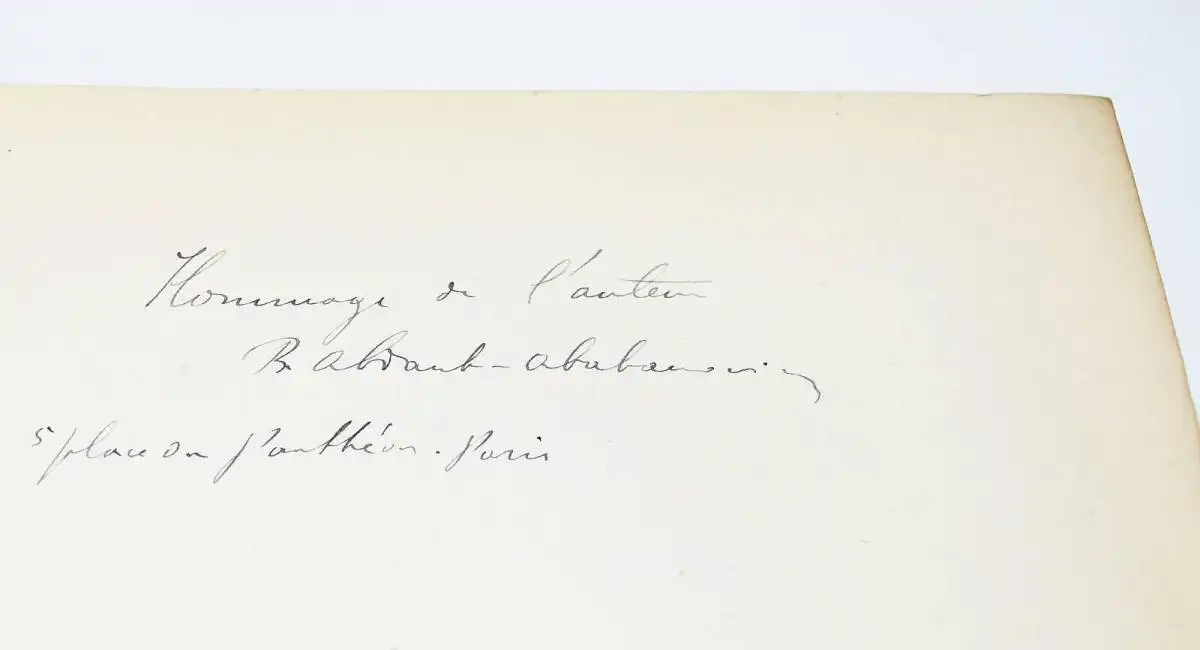 Hommage de l'auteur
B. Abdank-Abakanowicz
5 place du Panthéon. Paris